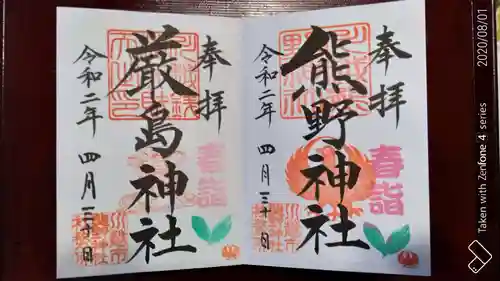 奉拝
春詣
熊野神社
令和二年 四月三十日
奉拝
春詣
厳島神社
令和二年 四月三十日
2020/08/01
Taken with Zenfone 4 series